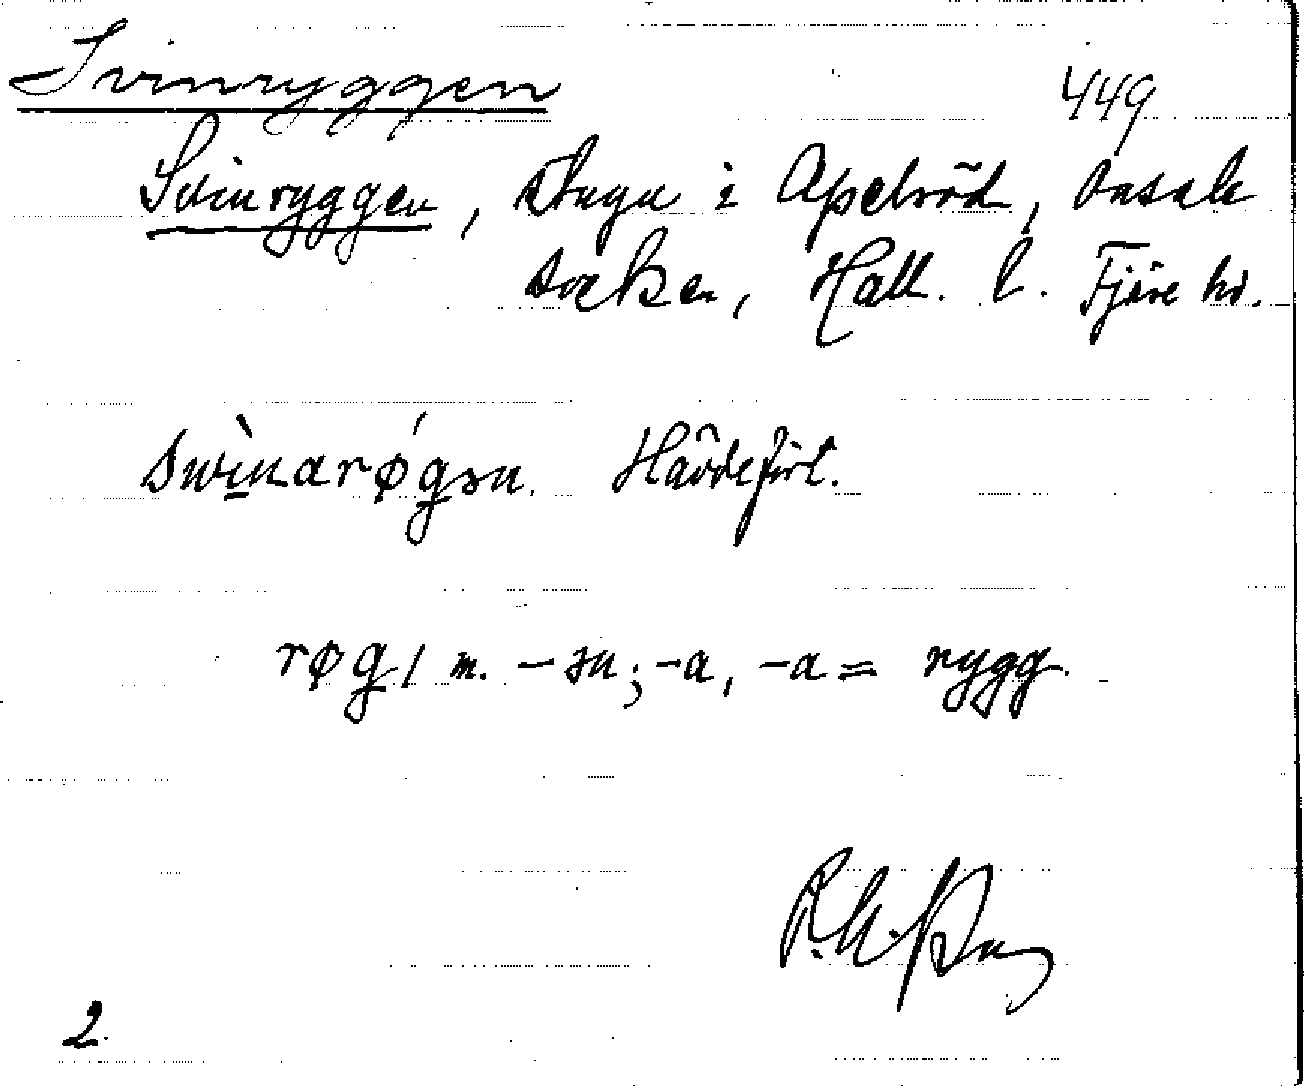 Svinryggen
449
Svinryggen, stuga i Apelröd, Onsala
socken, Hall. l. Fjäre hd.
swìnarǿgən. Hävdefört.
røg/ m. -ən; -a, -a = rygg.
2.